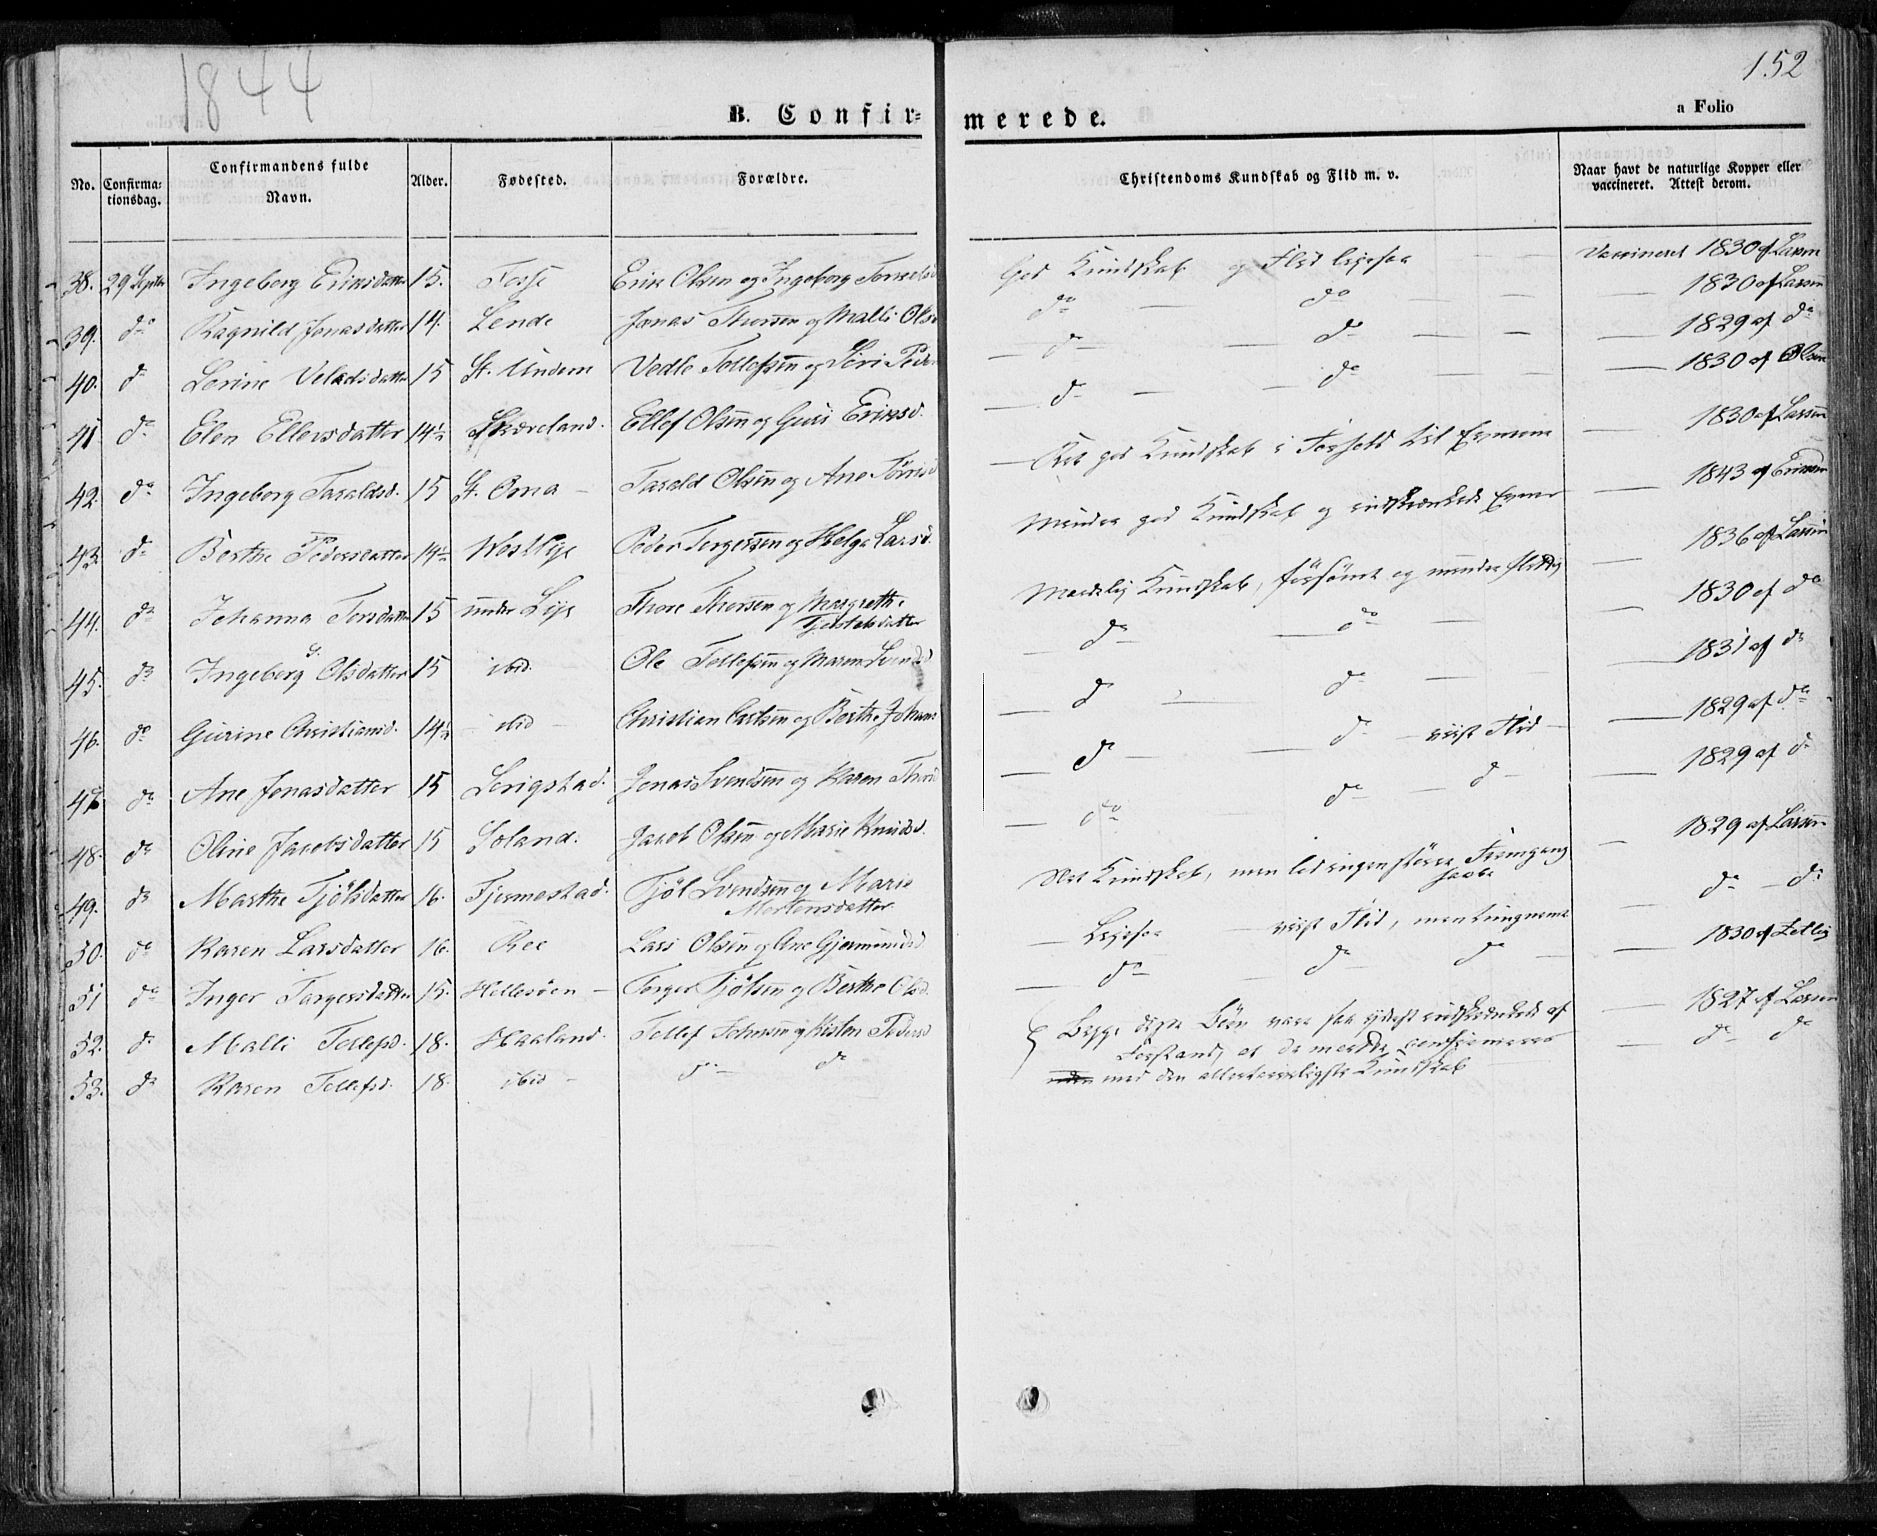 1844
152
B. Confir=
merede.
a Folio
No.
Confirma=
tionsdag.
Confirmandens fulde
Navn.
Alder.
Fødested.
Forældre.
Christendoms Kundskab og Flid m. v.
Naar havt de naturlige Kopper eller
vaccineret. Attest derom.
38. 29 Septbr Ingeborg Eriksdatter 15. Fosse Erik Olsen og Ingeborg God Kundskab og Flid ligesaa Vaccineret 1830 af Larsen
39. do Ragnild Jonasdatter 14. Lende Jonas Thorsen og Malli Olsd do do 1830 af Larsen
40. do Serine Veladsdatter 15 St. Undem Vedle Tollefsen og Siri Peders do do 1829 af do
41 do Elen Ellevsdatter 14½ Skæreland. Ellef Olsen og Guri Eriksd. do do 1830 af Olsen
42. do Ingeborg Taraldsd. 15 St. Oma Tarald Olsen og Ane Ret god Kundskab i Forhold til 1830 af Larsen
43. do Berthe Pedersdatter 14½ Peder Torgersen og Helga Larsd. Mindre god Kundskab og indskrænkede 1843 af Eriksen
44. do Johanna Torsdatter 15 under Lye Thore Thorsen og Margrethe
Tjostelsdatter
Maadelig Kundskab, forsømt og mindre flittig 1836 af Larsen
45. do Ingeborg Olsdatter 15 ibid. Ole Tollefsen og Maren Svends do do 1830 af do
46. do Gurine Christiansd. 14½ ibid Christian Carlsen og Berthe Johans do do 1831 af do
47 do Ane Jonasdatter 15 Serigstad. Jonas Svendsen og Karen Thord do do viist Flid 1829 af do
48. do Oline Jacobsdatter 15 Soland. Jacob Olsen og Marie Knudsd. do do do 1829 af do
49. do Marthe Tjölsdatter 16. Tjermestad. Tjöl Svendsen og Marie
Mortensdatter
Kundskab, men ingen større Fremgang
1829 af Larsen
50. do Karen Larsdatter 16. Ree Lars Olsen og Ane Gjermundsd Ligesaa viist Flid, men tungnem do do
51 do Inger Torgersdatter 15. Hellesöen Torger Tjölsen og Berthe Olsd. do do do 1830 af
52. do Malli Tollefsd. 18. Haaland. Tollef og Kisten Pedersd 1827 af Larsen
53. do Karen Tollefsd. 18. ibid do do do do
Begge disse Börn vare saa yderst indskrænkede af
Forstand, at de maatte confirmeres
med den allertarveligste Kundskab